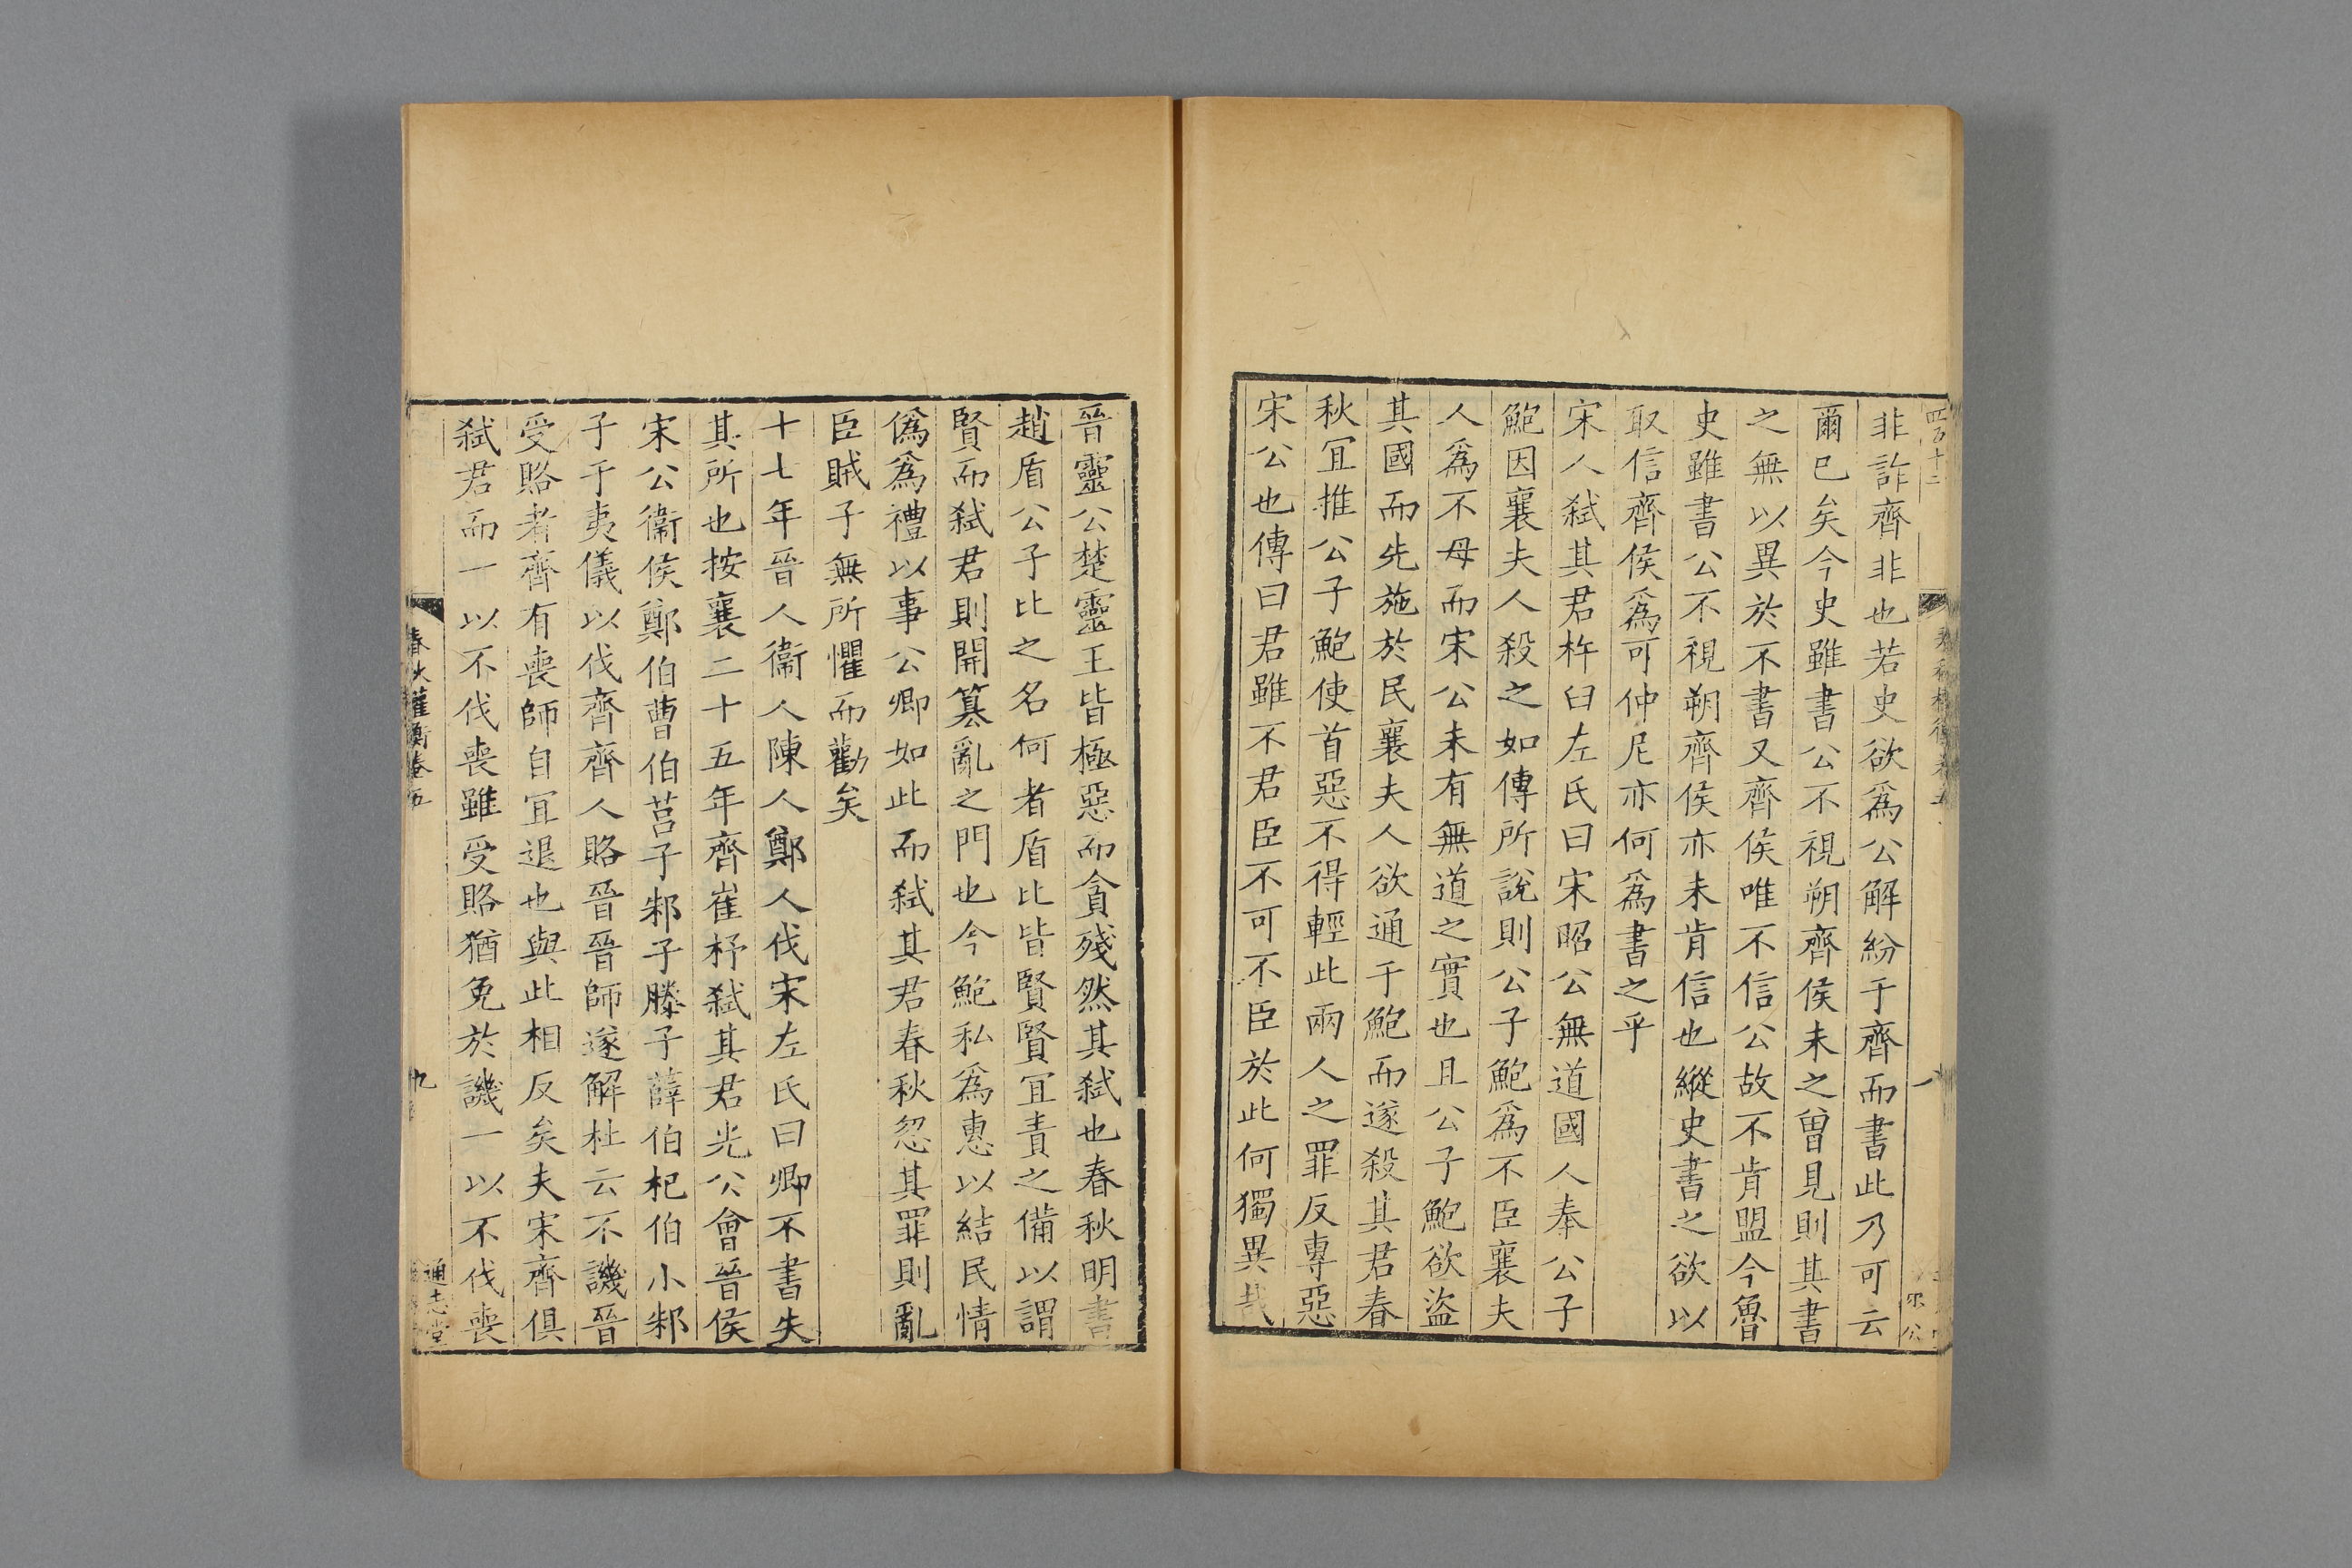 四百十二
非詐齊非也若史欲為公解紛于齊而書此乃可云
爾巳矣今史雖書公不視朔齊侯未之曾見則其書
之無以異於不書又齊侯唯不信公故不肯盟今魯
史雖書公不視朔齊侯亦未肯信也縱史書之欲以
取信齊侯為可仲尼亦何為書之乎
宋人弑其君杵臼左氏曰宋昭公無道國人奉公子
鮑因襄夫人殺之如傳所說則公子鮑為不臣襄夫
人為不母而宋公未有無道之實也且公子鮑欲盜
其國而先施於民襄夫人欲通于鮑而遂殺其君春
秋宜推公子鮑使首惡不得輕此兩人之罪反專惡
宋公也傳曰君雖不君臣不可不臣於此何獨異哉
晉靈公楚靈王皆極惡而貪殘然其弑也春秋明書
趙盾公子比之名何者盾比皆賢賢宜責之備以謂
賢而弑君則開篡亂之門也今鮑私為惠以結民情
僞為禮以事公卿如此而弑其君春秋忽其罪則亂
臣賊子無所懼而勸矣
十七年晉人衞人陳人鄭人伐宋左氏曰卿不書失
其所也按襄二十五年齊崔杼弑其君光公會晉侯
宋公衞侯鄭伯曹伯莒子邾子滕子薛伯杞伯小邾
子于夷儀以伐齊齊人賂晉晉師遂解杜云不譏晉
受賂者齊有喪師自宜退也與此相反矣夫宋齊俱
弑君而一以不伐喪雖受賂猶免於譏一以不伐喪
春秋權衡卷五
九
通志堂